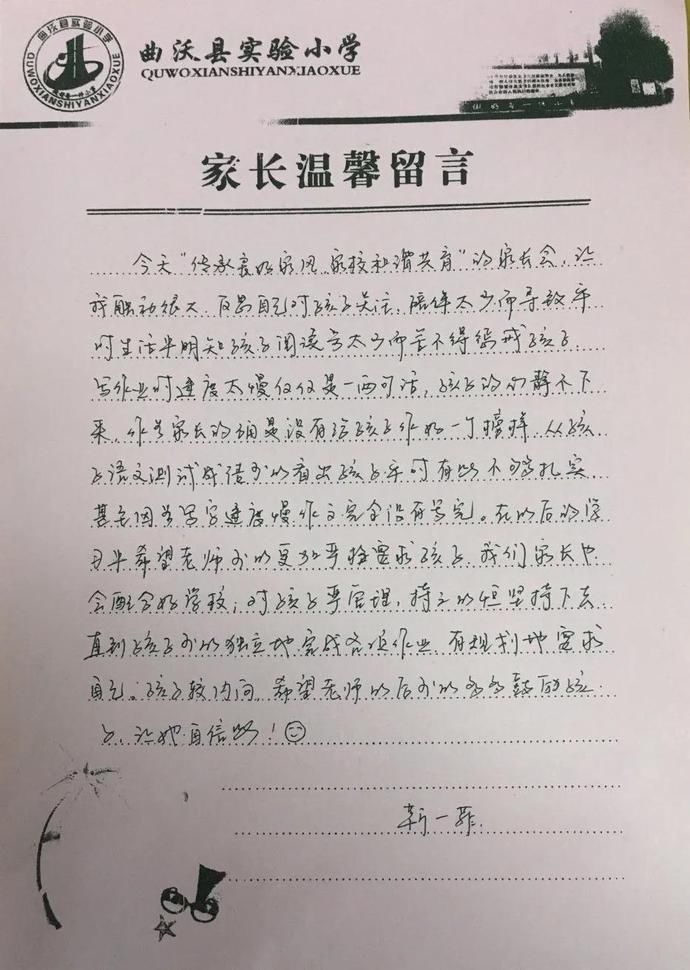 曲沃县实验小学
QUWOXIANSHIYANXIAOXUE
曲沃县实验小学
QUWOXIANSHIYANXIAOXUE
家长温馨留言
今天“传承良好家风、家校和谐共育”的家长会，让
我触动很大，反思自己对孩子关注、陪伴太少而导致平
时生活中明知孩子阅读量太少而舍不得惩戒孩子，
写作业时速度太慢仅仅是一两句话，孩子的心静不下
来，作为家长的确是没有给孩子作好一个榜样，从孩
子语文测试成绩可以看出孩子平时有些不够扎实，
甚至因为写字速度慢作文完全没有写完。在以后的学
习中希望老师可以更加严格要求孩子，我们家长也
会配合好学校，对孩子严管理，持之以恒坚持下去
直到孩子可以独立地完成各项作业，有规划地要求
自己。孩子较内向，希望老师以后可以多多鼓励孩
子，让她自信些！
靳一菲